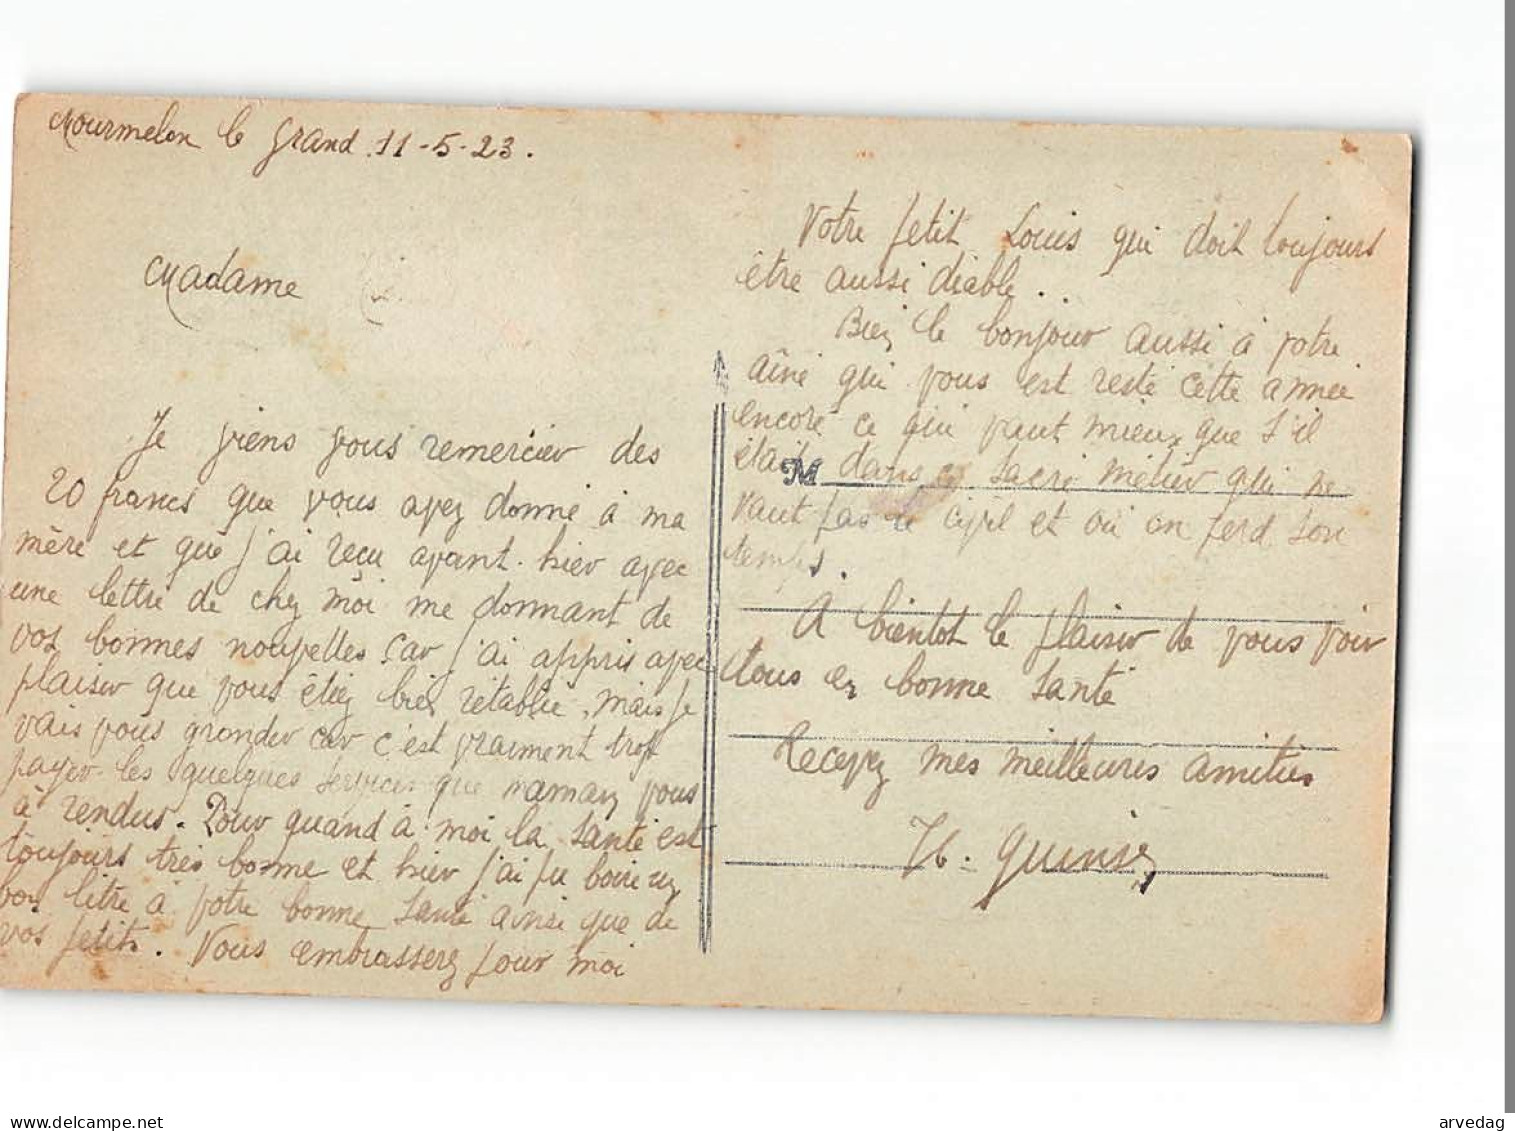 Mourmelon le grand 11-5-23.
Madame
Je viens vous remercier des
20 francs que vous avez donné à ma
mère et que j'ai reçu avant-hier avec
une lettre de chez moi me donnant de
vos bonnes nouvelles car j'ai appris avec
plaisir que vous étiez bien rétablie, mais je
vais vous gronder car c'est vraiment trop
payer les quelques services que maman vous
à rendus. Pour quand à moi la santé est
toujours très bonne et hier j'ai pu boire un
bon litre à votre bonne santé ainsi que de
vos petits. Vous embrasserez pour moi
Votre petit Louis qui doit toujours
être aussi diable..
Bien le bonjour aussi à votre
aîné qui vous est resté cette année
encore ce qui vaut mieux que s'il
était dans ce sacré métier qui ne
M
vaut pas le civil et où on perd son
temps.
A bientot le plaisir de vous voir
tous en bonne santé
Recevez mes meilleures amitiés
H. Quinsez
delcampe.net
arvedag